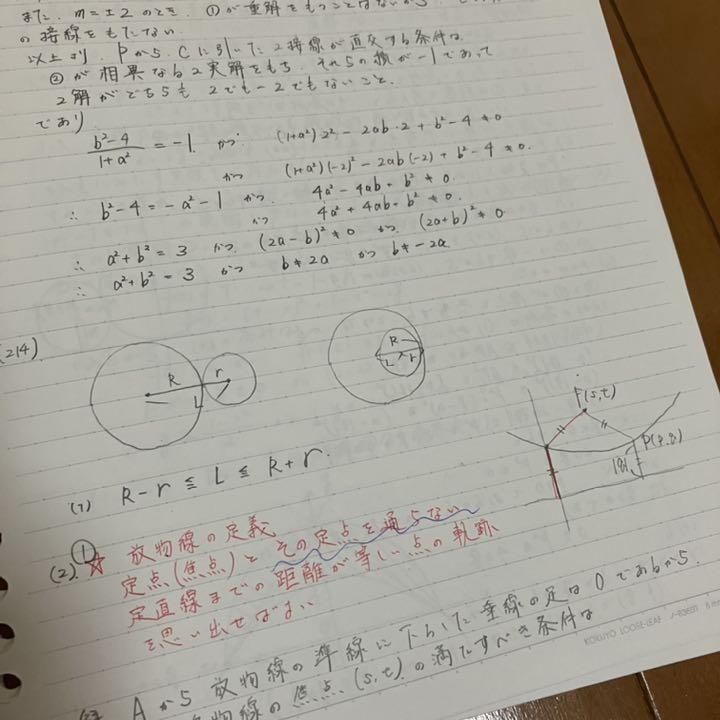 また、m=±2のとき、①が重解をもつことはないから、
の接線をもたない。
以上より、PからCに引いた2接線が直交する条件は
②が相異なる2実解をもち、それらの積が-1であって
2解がどちらも2でも-2でもないこと。
であり
(b²-4)/(1+a²) = -1 かつ (1+a²)2² - 2ab・2 + b² - 4 ≠ 0
かつ (1+a²)(-2)² - 2ab(-2) + b² - 4 ≠ 0.
∴ b²-4 = -a²-1 かつ 4a² - 4ab + b² ≠ 0.
かつ 4a² + 4ab + b² ≠ 0.
∴ a²+b² = 3 かつ (2a-b)² ≠ 0 かつ (2a+b)² ≠ 0
∴ a²+b² = 3 かつ b ≠ 2a かつ b ≠ -2a
214)
R r L
R L r
F(s,t)
P(p,q)
|q|
(1) R-r ≦ L ≦ R+r.
(2) ① ☆ 放物線の定義
定点(焦点)とその定点を通らない
定直線までの距離が等しい点の軌跡
を思い出せばよい
Aから放物線の準線に下ろした垂線の足はOであるから
物線の焦点(s,t)の満たすべき条件は
KOKUYO LOOSE-LEAF